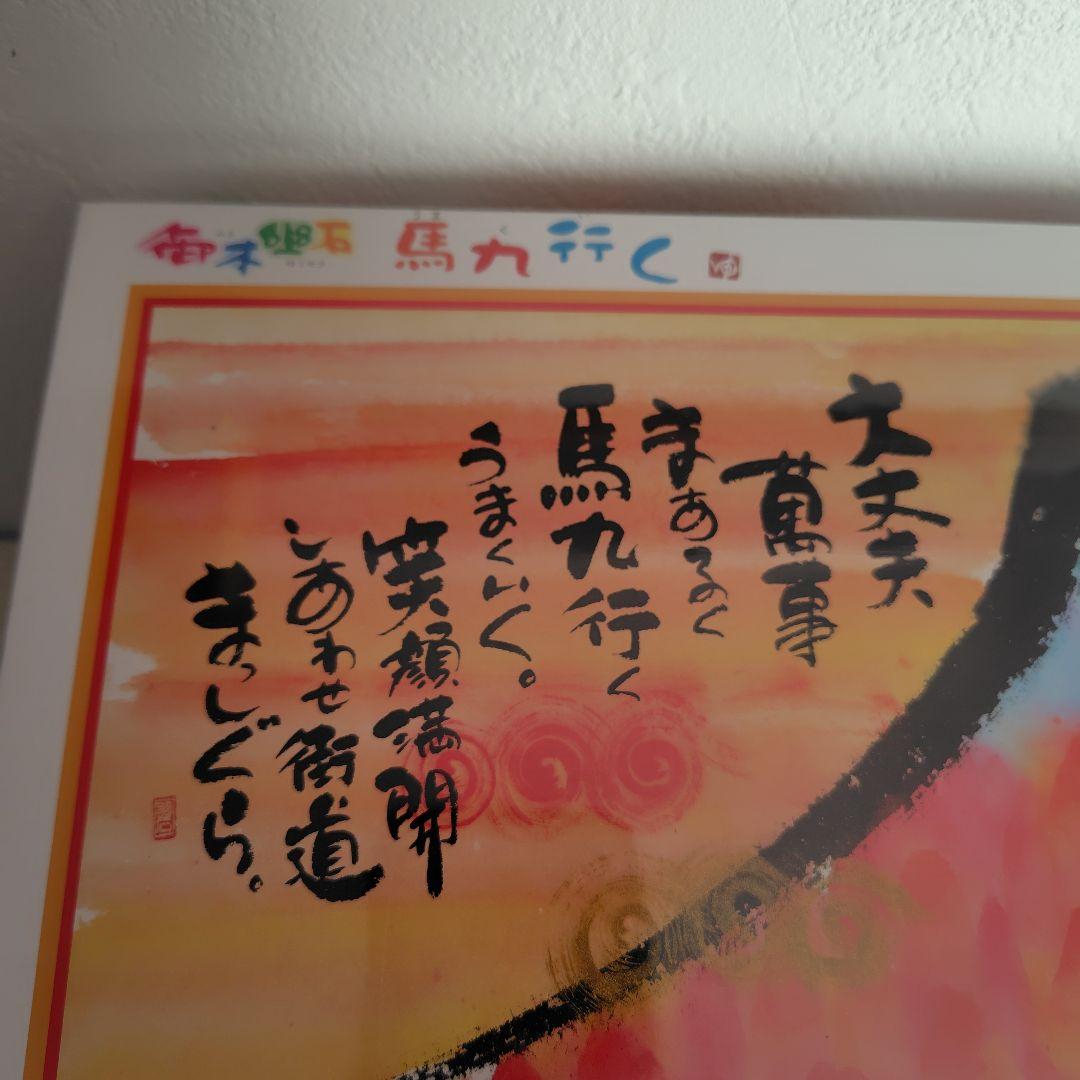 御木幽石 馬九行く ゆ
大丈夫
萬事
まあるく
馬九行く
うまくいく。
笑顔満開
しあわせ街道
まっしぐら。